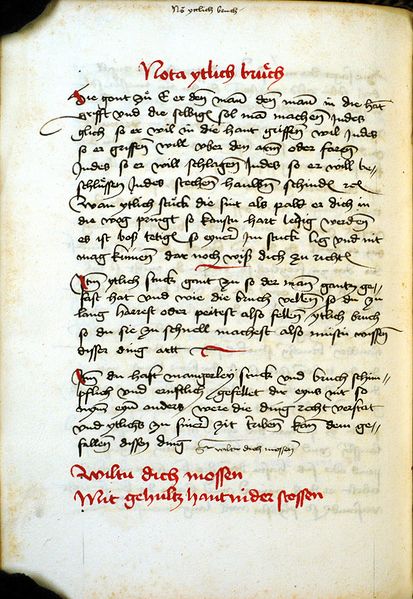 Nō ytlich bruch
Nota ytlich brůch
Die gont zů E er den man den man in die hat
grifft vnd die selbige sol man machen Jndes
glich so er wil in die hant griffen wil Jndes
so er griffen will vber den arm oder
Jndes so er will schlagen Jndes so er will be=
schlüssen Jndes stechen
wan ytlich stuck die sint als pald er dich in
die wag pringt so kanstu hart ledig werden
es ist boß so einer Jm stuck lig vnd nit
mag kinnen dar noch wiß dich zu richt
Jtem ytlich stuck gant zu so der man gantz ge=
fast hat vnd wie die bruch vellen so du zu
lang harrest oder peitest also fellen ytlich bruch
so du sie zu schnell machest also mustu wissen
disser ding
Jtem du hast mangerley stuck vnd bruch schim=
pflich vnd ernstlich gefellet die eyns nit so
nym eyn anders were die ding recht verstat
vnd ytlichs zu siner zit triben kan dem ge=
fallen dissen ding wiltu dich mossen
Wiltu dich mossen
Mit gehultz hant nider stossen